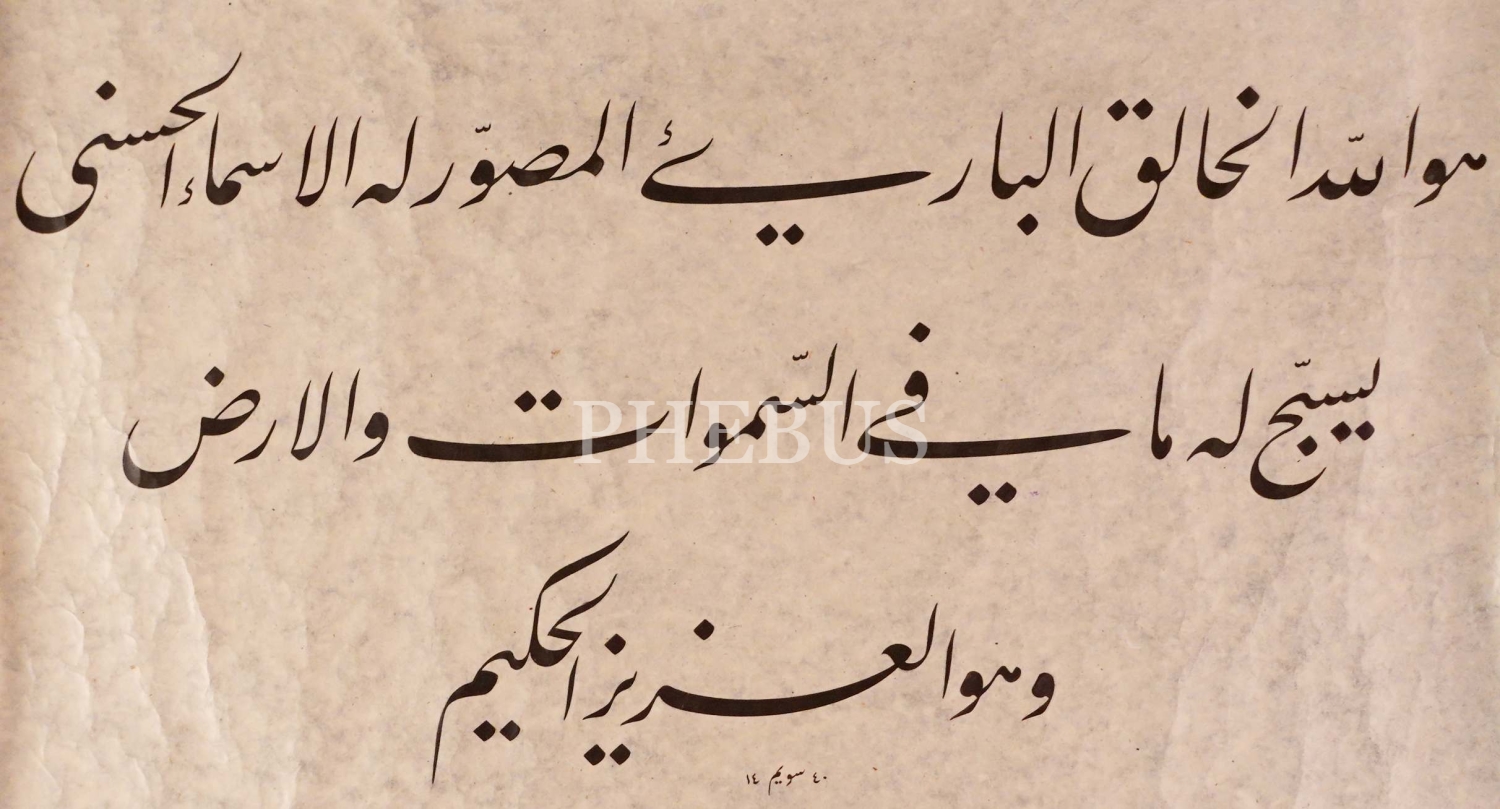 هو الله الخالق البارئ المصوّر له الاسماء الحسنى
يسبّح له ما في السّموات والارض
PHEBUS
وهو العزيز الحكيم